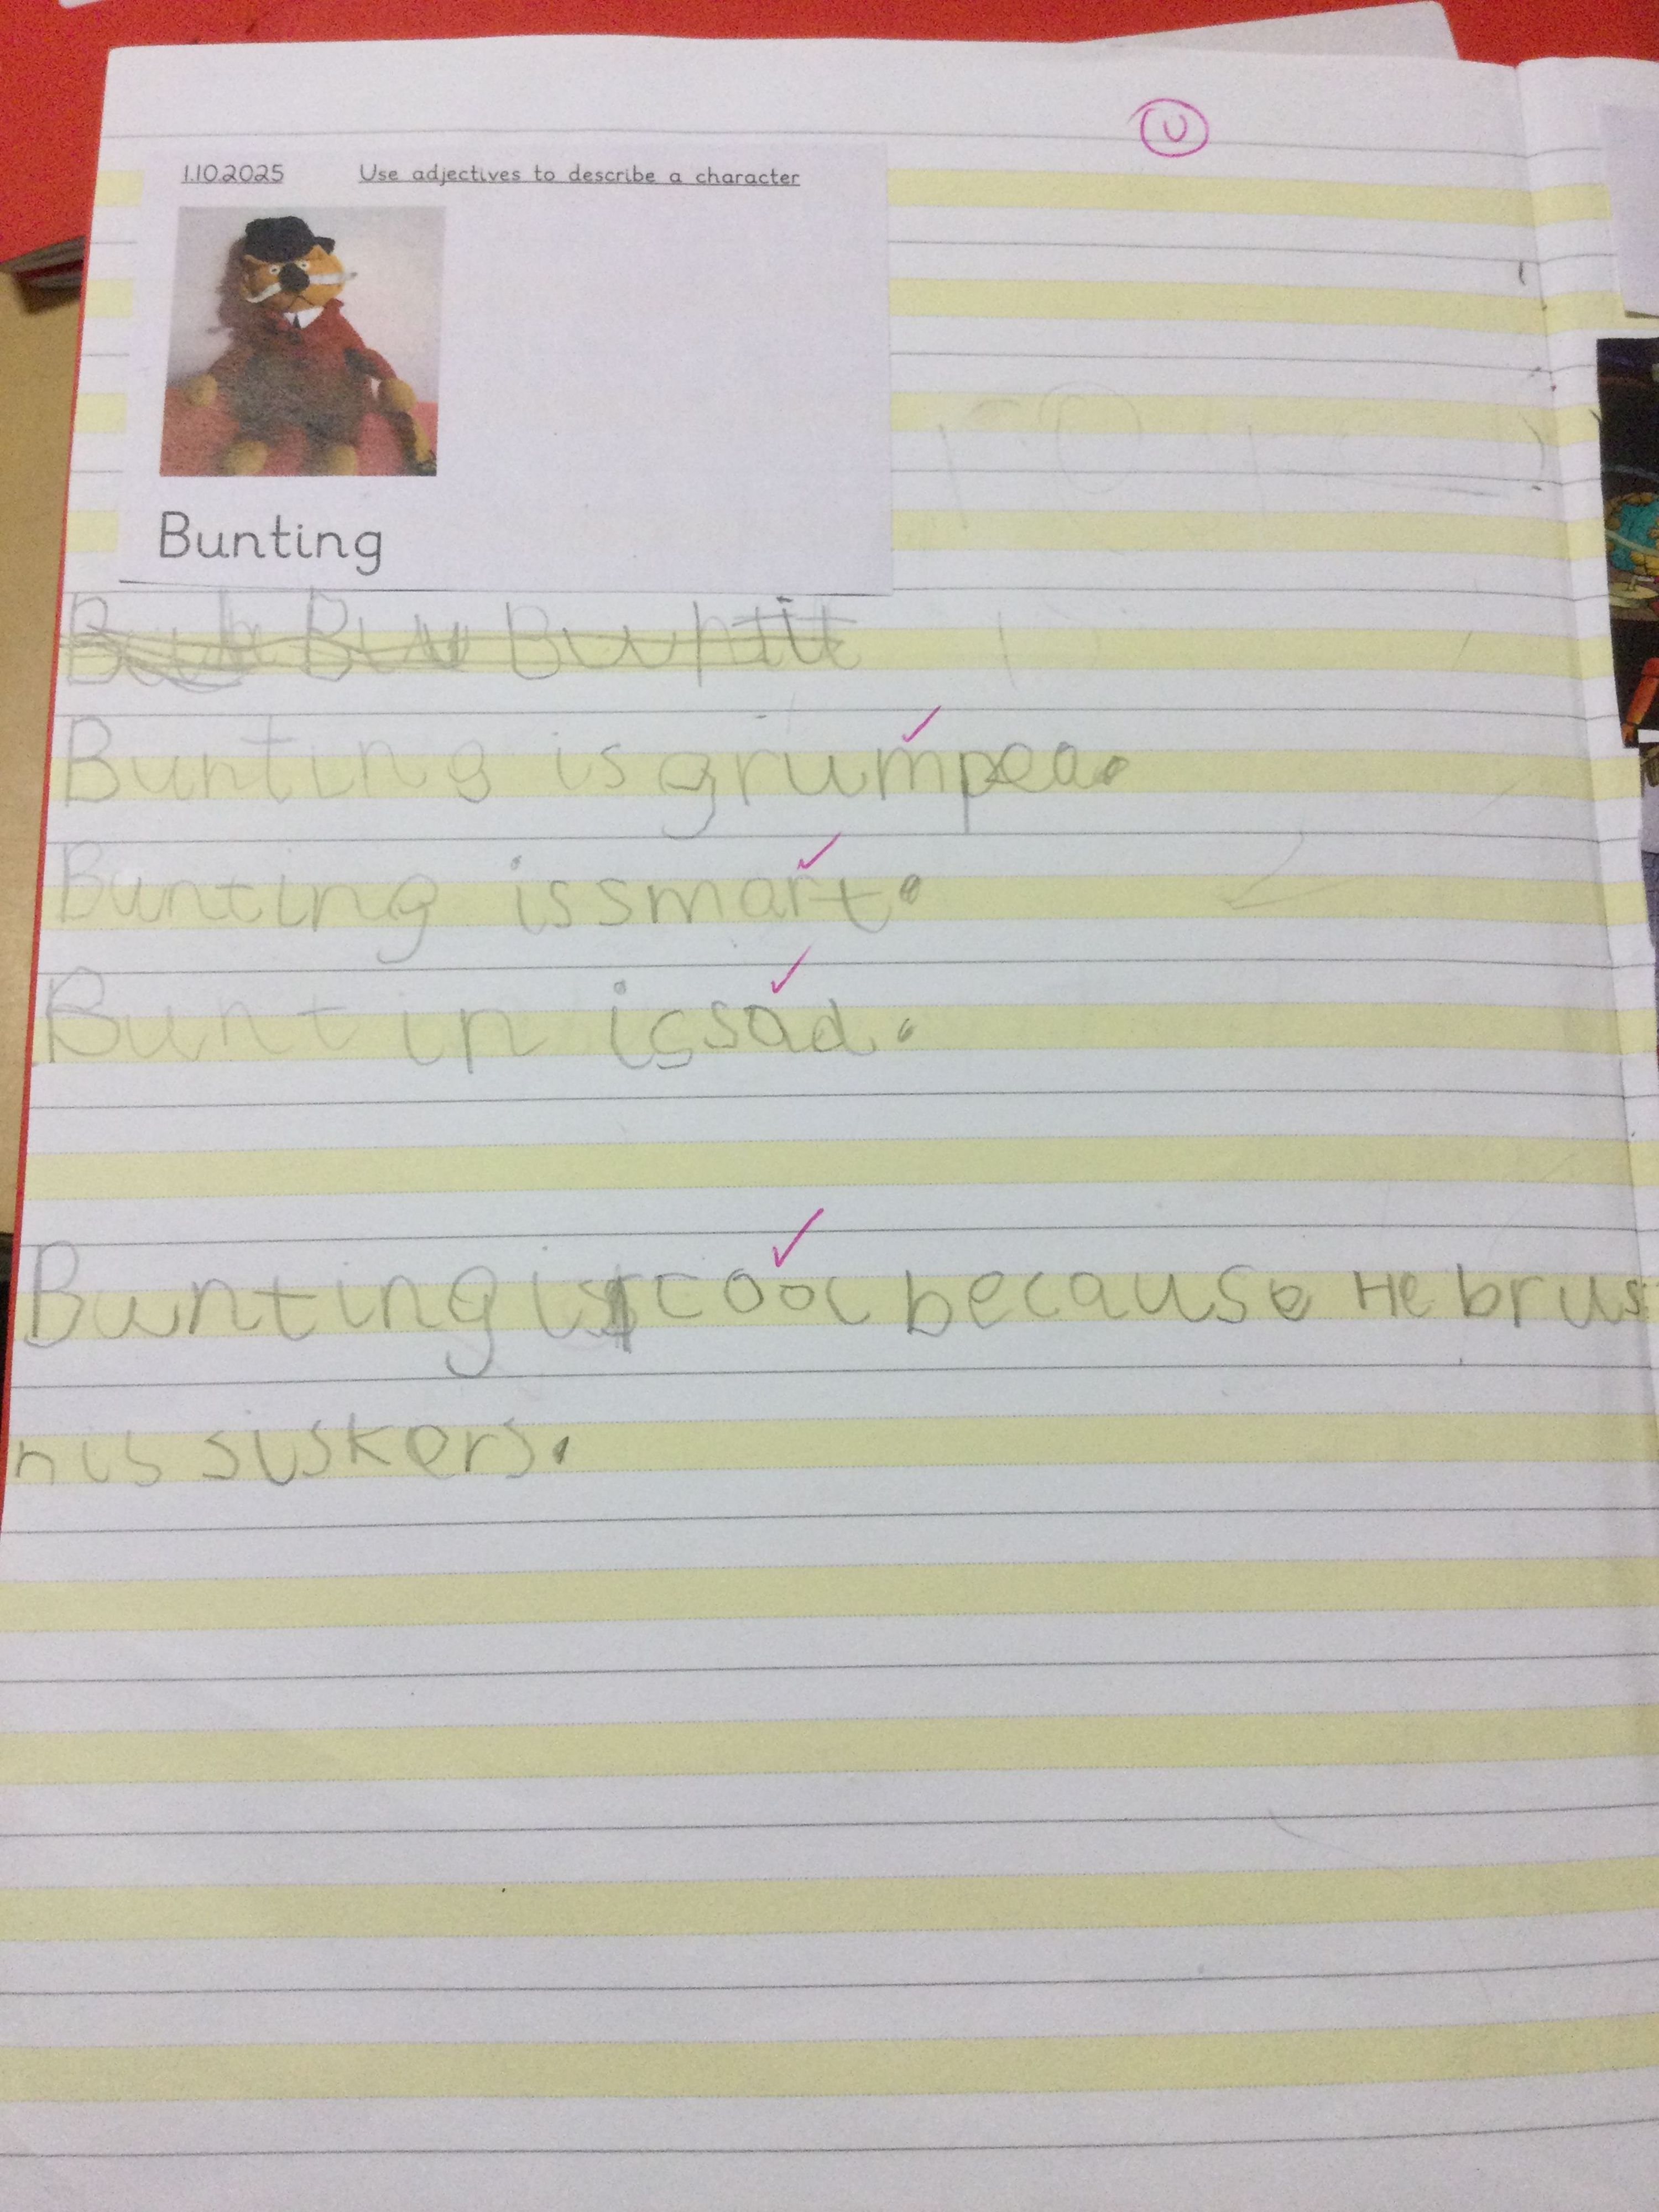 U
1.10.2025 Use adjectives to describe a character
Bunting
Bunting is grumpea.
Bunting is smart.
Buntin is sad.
Bunting is cool because He brus
his siskers.